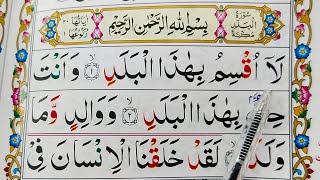 سُورَةُ الْبَلَدِ مَكِّيَّةٌ
بِسْمِ اللهِ الرَّحْمٰنِ الرَّحِيْمِ
لَاۤ اُقْسِمُ بِهٰذَا الْبَلَدِ ۙ﴿۱﴾ وَاَنْتَ
حِلٌّۢ بِهٰذَا الْبَلَدِ ۙ﴿۲﴾ وَوَالِدٍ وَّمَا
وَلَدَ ۙ﴿۳﴾ لَقَدْ خَلَقْنَا الْاِنْسَانَ فِیْ